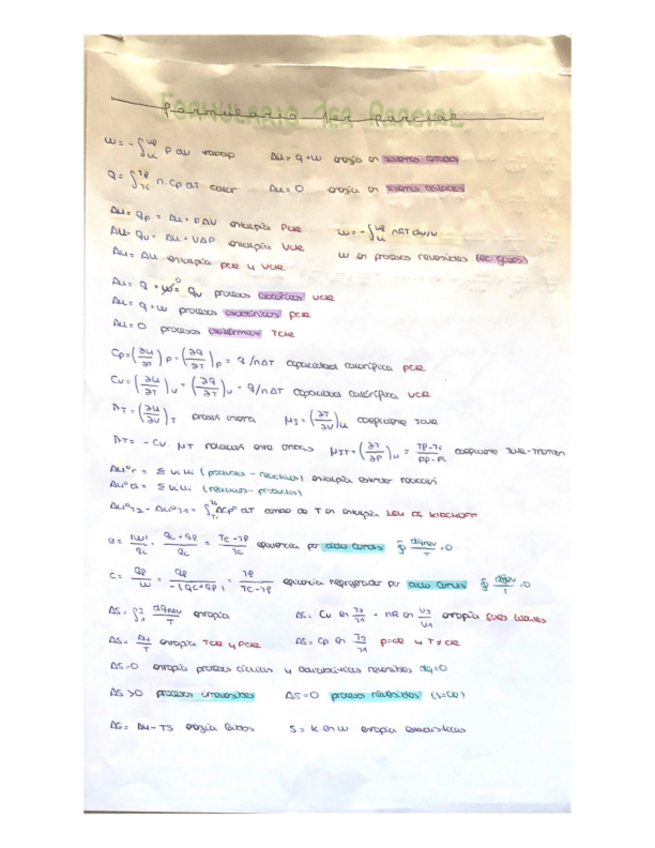 Formulario 1er parcial
w = -∫ p dv trabajo Δu = q + w energía en sistemas cerrados
q = ∫ n·Cp dT calor Δu = 0 energía en sistemas aislados
ΔH = qp = Δu + PΔV entalpía P cte w = -∫ nRT dv/v
ΔH = qv = Δu + VΔP entalpía V cte w en procesos reversibles (ec gases)
ΔH = Δu entalpía P cte y V cte
Δu = q + w = qv procesos V cte
Δu = q + w procesos P cte
Δu = 0 procesos isotérmicos T cte
Cp = (∂H/∂T)p = (∂q/∂T)p = q/nΔT capacidad calorífica P cte
Cv = (∂u/∂T)v = (∂q/∂T)v = q/nΔT capacidad calorífica V cte
πT = (∂u/∂v)T presión interna μJ = (∂T/∂v)u coeficiente Joule
πT = -Cv · μJ relación entre ambos μJT = (∂T/∂P)H = coeficiente Joule-Thomson
ΔH°r = Σ νi Hi (productos - reactivos) entalpía estándar reacción
= Σ νi Hi (reactivos - productos)
ΔH°T2 - ΔH°T1 = ∫ ΔCp° dT cambio de T en entalpía LEY DE KIRCHOFF
e = |w|/qc = qc + qf/qc = Tc - Tf/Tc eficiencia por ciclo Carnot ∮ dqrev/T = 0
c = qf/w = qf/-(qc+qf) = Tf/Tc-Tf eficiencia refrigerador por ciclo Carnot ∮ dqrev/T = 0
ΔS = ∫ dqrev/T entropía ΔS = Cv ln T2/T1 + nR ln V2/V1 entropía gases ideales
ΔS = ΔH/T entropía T cte y P cte ΔS = Cp ln T2/T1 p=cte y T≠cte
ΔS = 0 entropía procesos cíclicos y adiabáticos reversibles dq=0
ΔS > 0 procesos irreversibles ΔS = 0 procesos reversibles (S=cte)
ΔG = ΔH - TS energía Gibbs S = k ln w entropía estadística